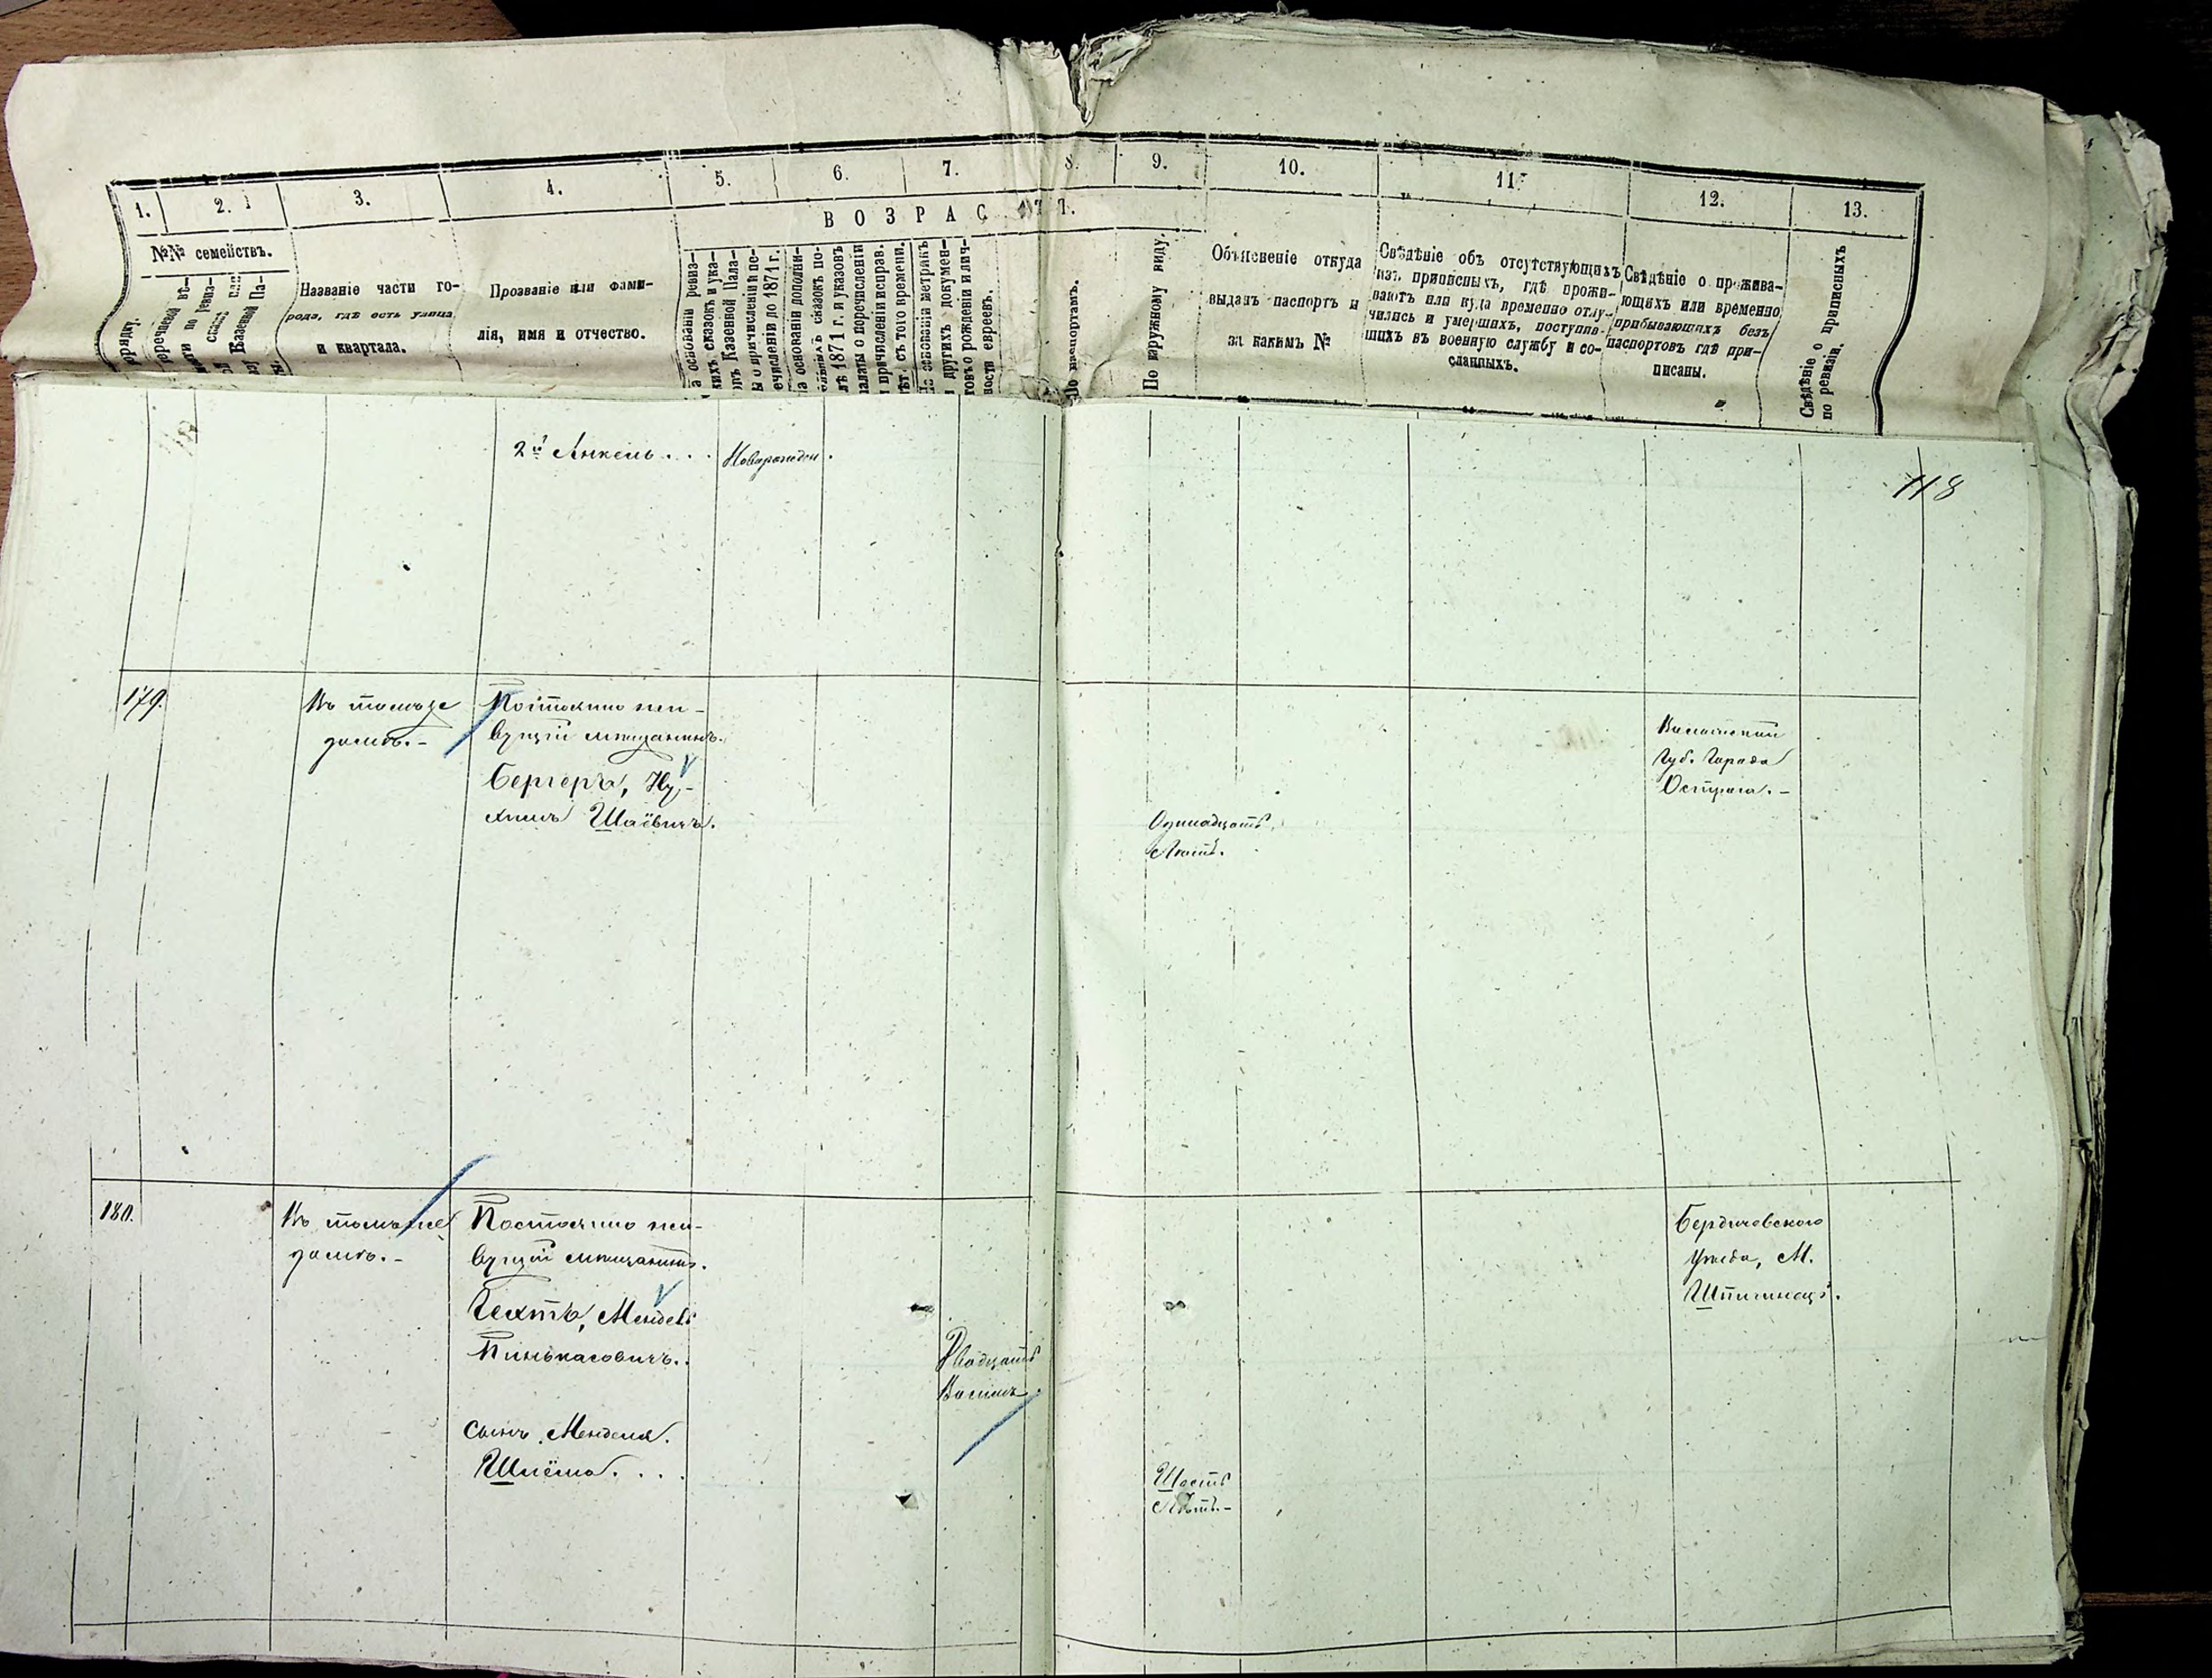 1. 2. 3. 4. 5. 6. 7. 8. 9. 10. 11. 12. 13.
ВОЗРАС
№№ семействъ.
Названіе части го-
рода, гдѣ есть улица
и квартала.
Прозваніе или фами-
лія, имя и отчество.
а основаніи ревиз-
кихъ сказокъ и ука-
овъ Казенной Пала-
ы о причисленіи и пе-
ечисленіи до 1871 г.
лѣ 1871 г. и указовъ
алаты о перечисленіи
и причисленіи исправ.
лѣт. съ того времени.
На основаніи метрик
и другихъ докумен-
товъ о рожденіи и лич-
ности евреевъ.
По паспортамъ.
По наружному виду.
Объясненіе откуда
выданъ паспортъ и
за какимъ №
Свѣдѣніе объ отсутствующихъ
изъ приписныхъ, гдѣ прожи-
ваютъ или куда временно отлу-
чились и умершихъ, поступив-
шихъ въ военную службу и со-
сланныхъ.
Свѣдѣніе о прожива-
ющихъ или временно
прибывающихъ безъ
паспортовъ гдѣ при-
писаны.
Свѣдѣніе о приписныхъ
по ревизіи.
118
2й Анкель...
179.
Въ томъ же
домѣ.-
Постоянно жи-
вущій мѣщанинъ.
Бергеръ, Ну-
химъ Шаёвичъ.
Одинадцать
Лѣтъ.
Волынской
Губ. Города
Острога.-
180.
Въ томъ же
домѣ.-
Постоянно жи-
вущій мѣщанинъ.
Бехтъ, Мендель
Пинькасовичъ.
Двадцать
Восемь.
Сынъ Менделя.
Шлёма....
Шесть
Лѣтъ.-
Бердичевского
Уѣзда, М.